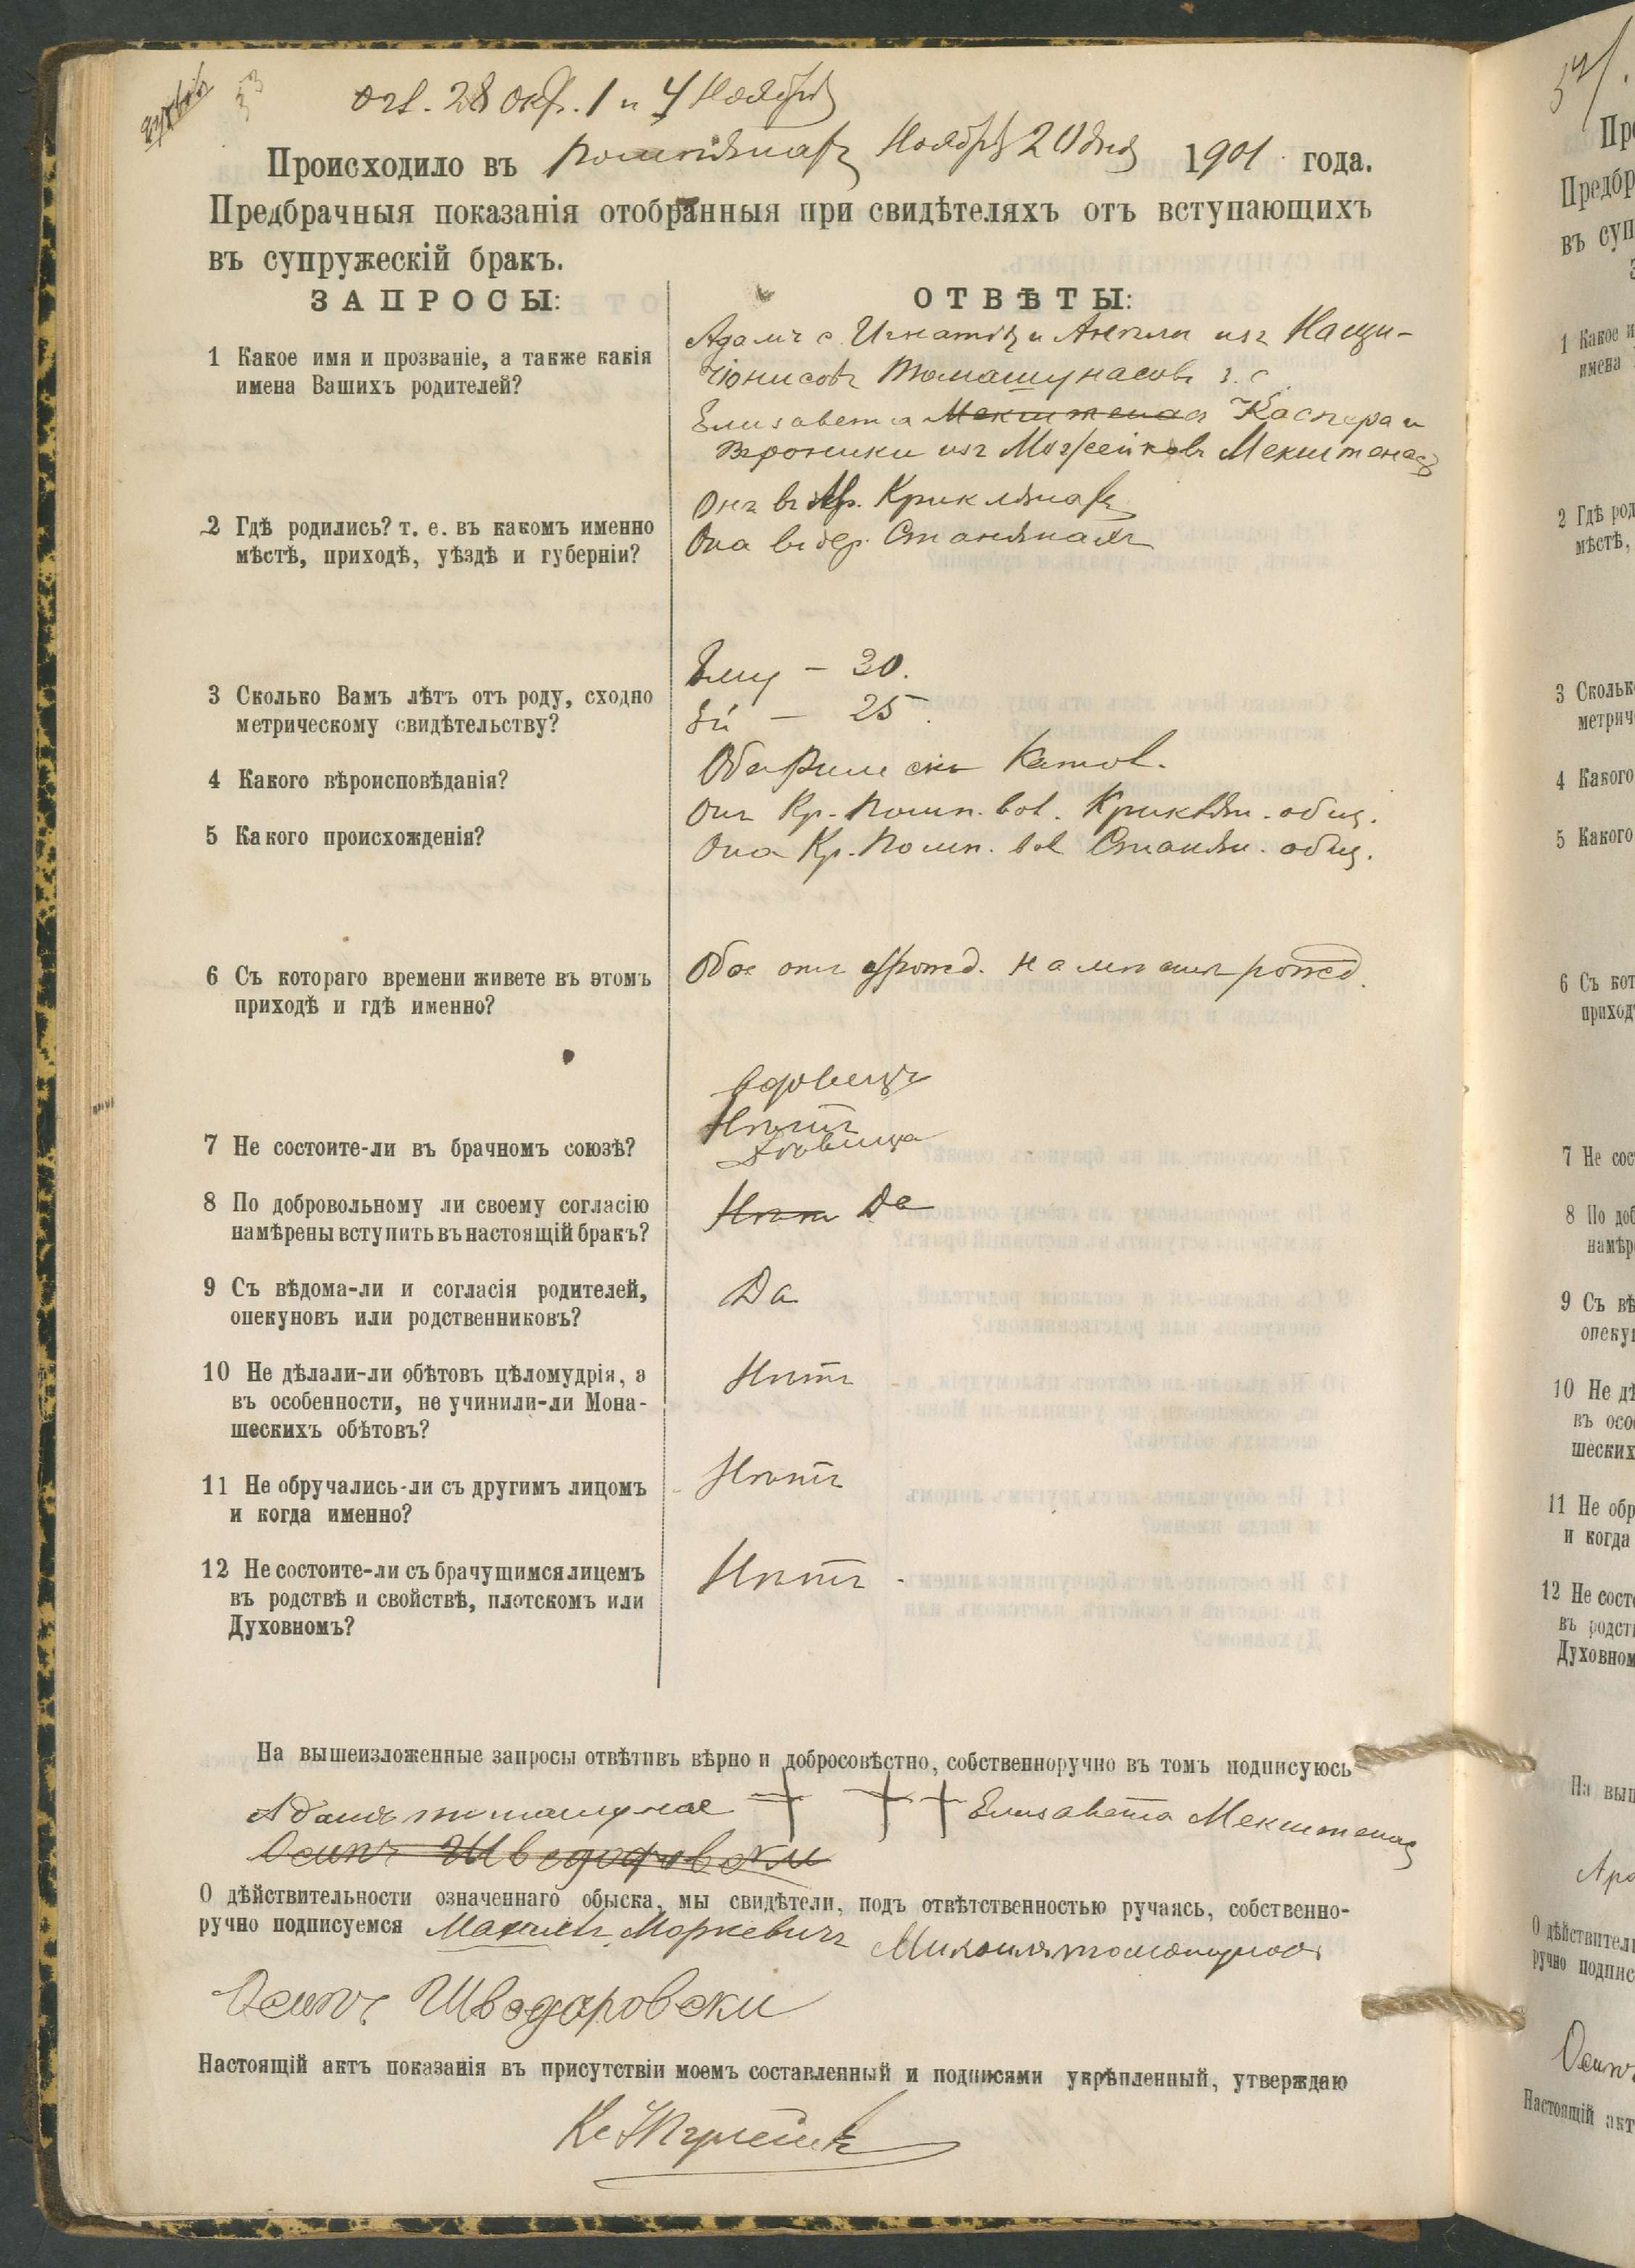 33
Огл. 28 Окт. 1 и 4 Ноября
Происходило въ Ноября 20 дня 1901 года.
Предбрачныя показанія отобранныя при свидѣтеляхъ отъ вступающихъ
въ супружескій бракъ.
ЗАПРОСЫ:
ОТВѢТЫ:
1 Какое имя и прозваніе, а также какія
имена Вашихъ родителей?
Адамъ с. Игнатія и Анелии изъ Нащи-
чіонисовъ Томашунасовъ з. с.
Елисавета Мекштенасъ Каспера и
Вѣроники изъ Можейковъ Мекштенасъ
2 Гдѣ родились? т. е. въ какомъ именно
мѣстѣ, приходѣ, уѣздѣ и губерніи?
Онъ въ др. Криклянахъ
Она въ дер. Станянахъ
3 Сколько Вамъ лѣтъ отъ роду, сходно
метрическому свидѣтельству?
Ему - 30.
Ей - 25.
4 Какого вѣроисповѣданія?
Оба Римско Катол.
5 Какого происхожденія?
Онъ Кр. Пошп. вол. Криклян. общ.
Она Кр. Пошп. вол Станян. общ.
6 Съ котораго времени живете въ этомъ
приходѣ и гдѣ именно?
Обое отъ рожд. на мѣстѣ рожд.
7 Не состоите-ли въ брачномъ союзѣ?
вдовецъ
Нѣтъ
дѣвица
8 По добровольному ли своему согласію
намѣрены вступить въ настоящій бракъ?
Нѣтъ Да
9 Съ вѣдома-ли и согласія родителей,
опекуновъ или родственниковъ?
Да
10 Не дѣлали-ли обѣтовъ цѣломудрія, а
въ особенности, не учинили-ли Мона-
шескихъ обѣтовъ?
Нѣтъ
11 Не обручались-ли съ другимъ лицомъ
и когда именно?
Нѣтъ
12 Не состоите-ли съ брачущимся лицемъ
въ родствѣ и свойствѣ, плотскомъ или
Духовномъ?
Нѣтъ.
На вышеизложенные запросы отвѣтивъ вѣрно и добросовѣстно, собственноручно въ томъ подписуюсь
Адамъ томашунас + + + Елисавета Мекштенас
Осипъ Шведаровски
О дѣйствительности означеннаго обыска, мы свидѣтели, подъ отвѣтственностью ручаясь, собственно-
ручно подписуемся Маркевичъ Михаилъ томашунас
Осипъ Шведаровски
Настоящій актъ показанія въ присутствіи моемъ составленный и подписями укрѣпленный, утверждаю